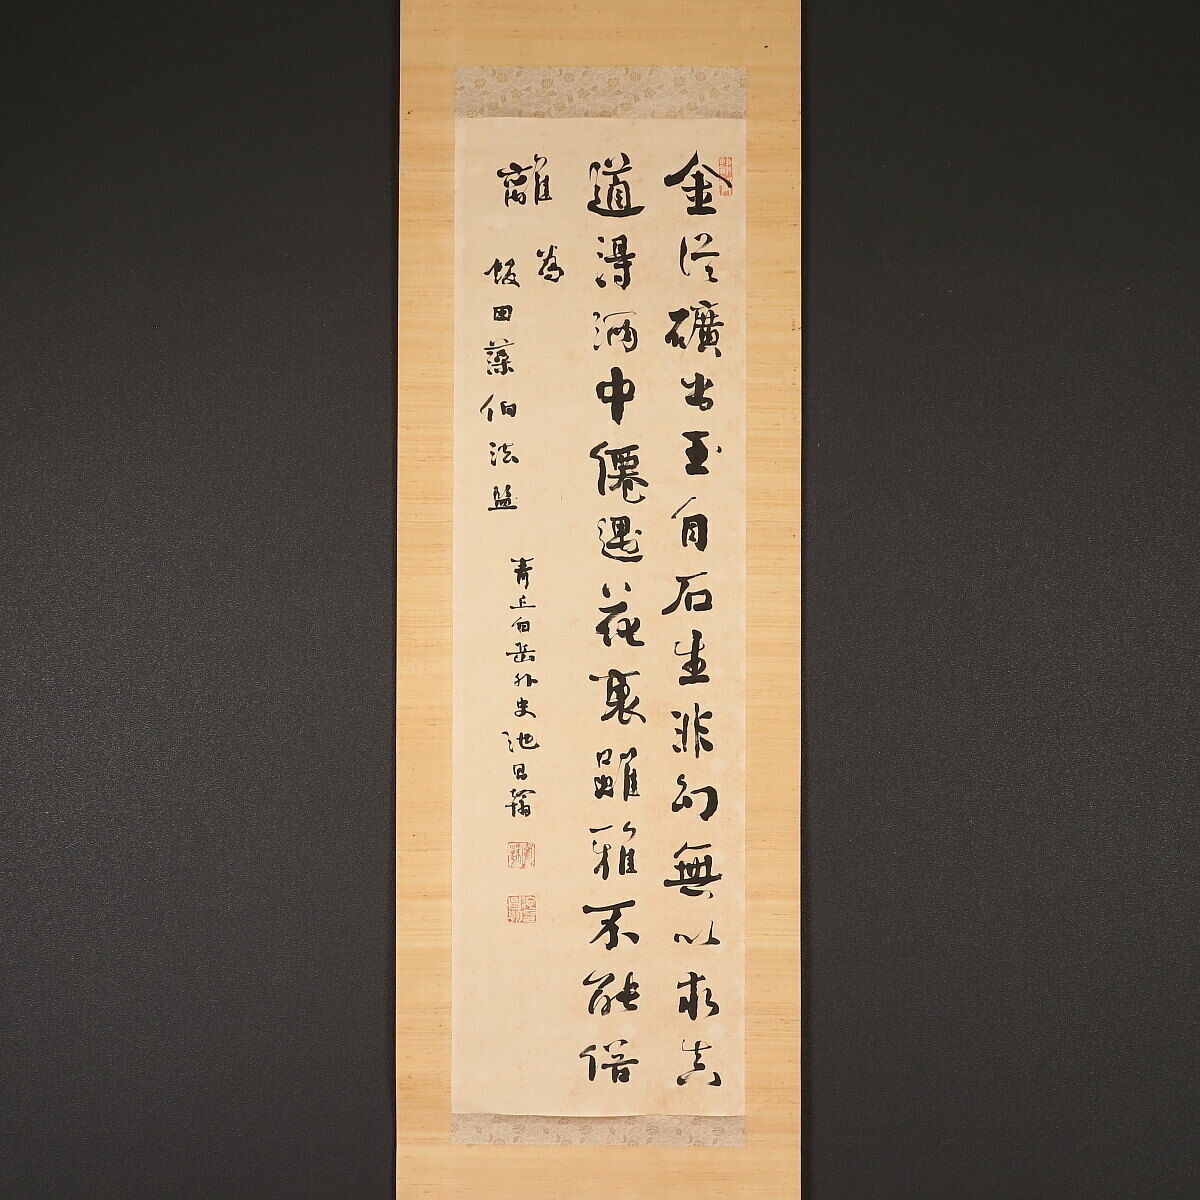 金從礦出玉自石生非幻無以求真
道得酒中僊遇花裏雖雅不能俗
離
為
坂田藻伯法監
青丘白岳外史池昌翰